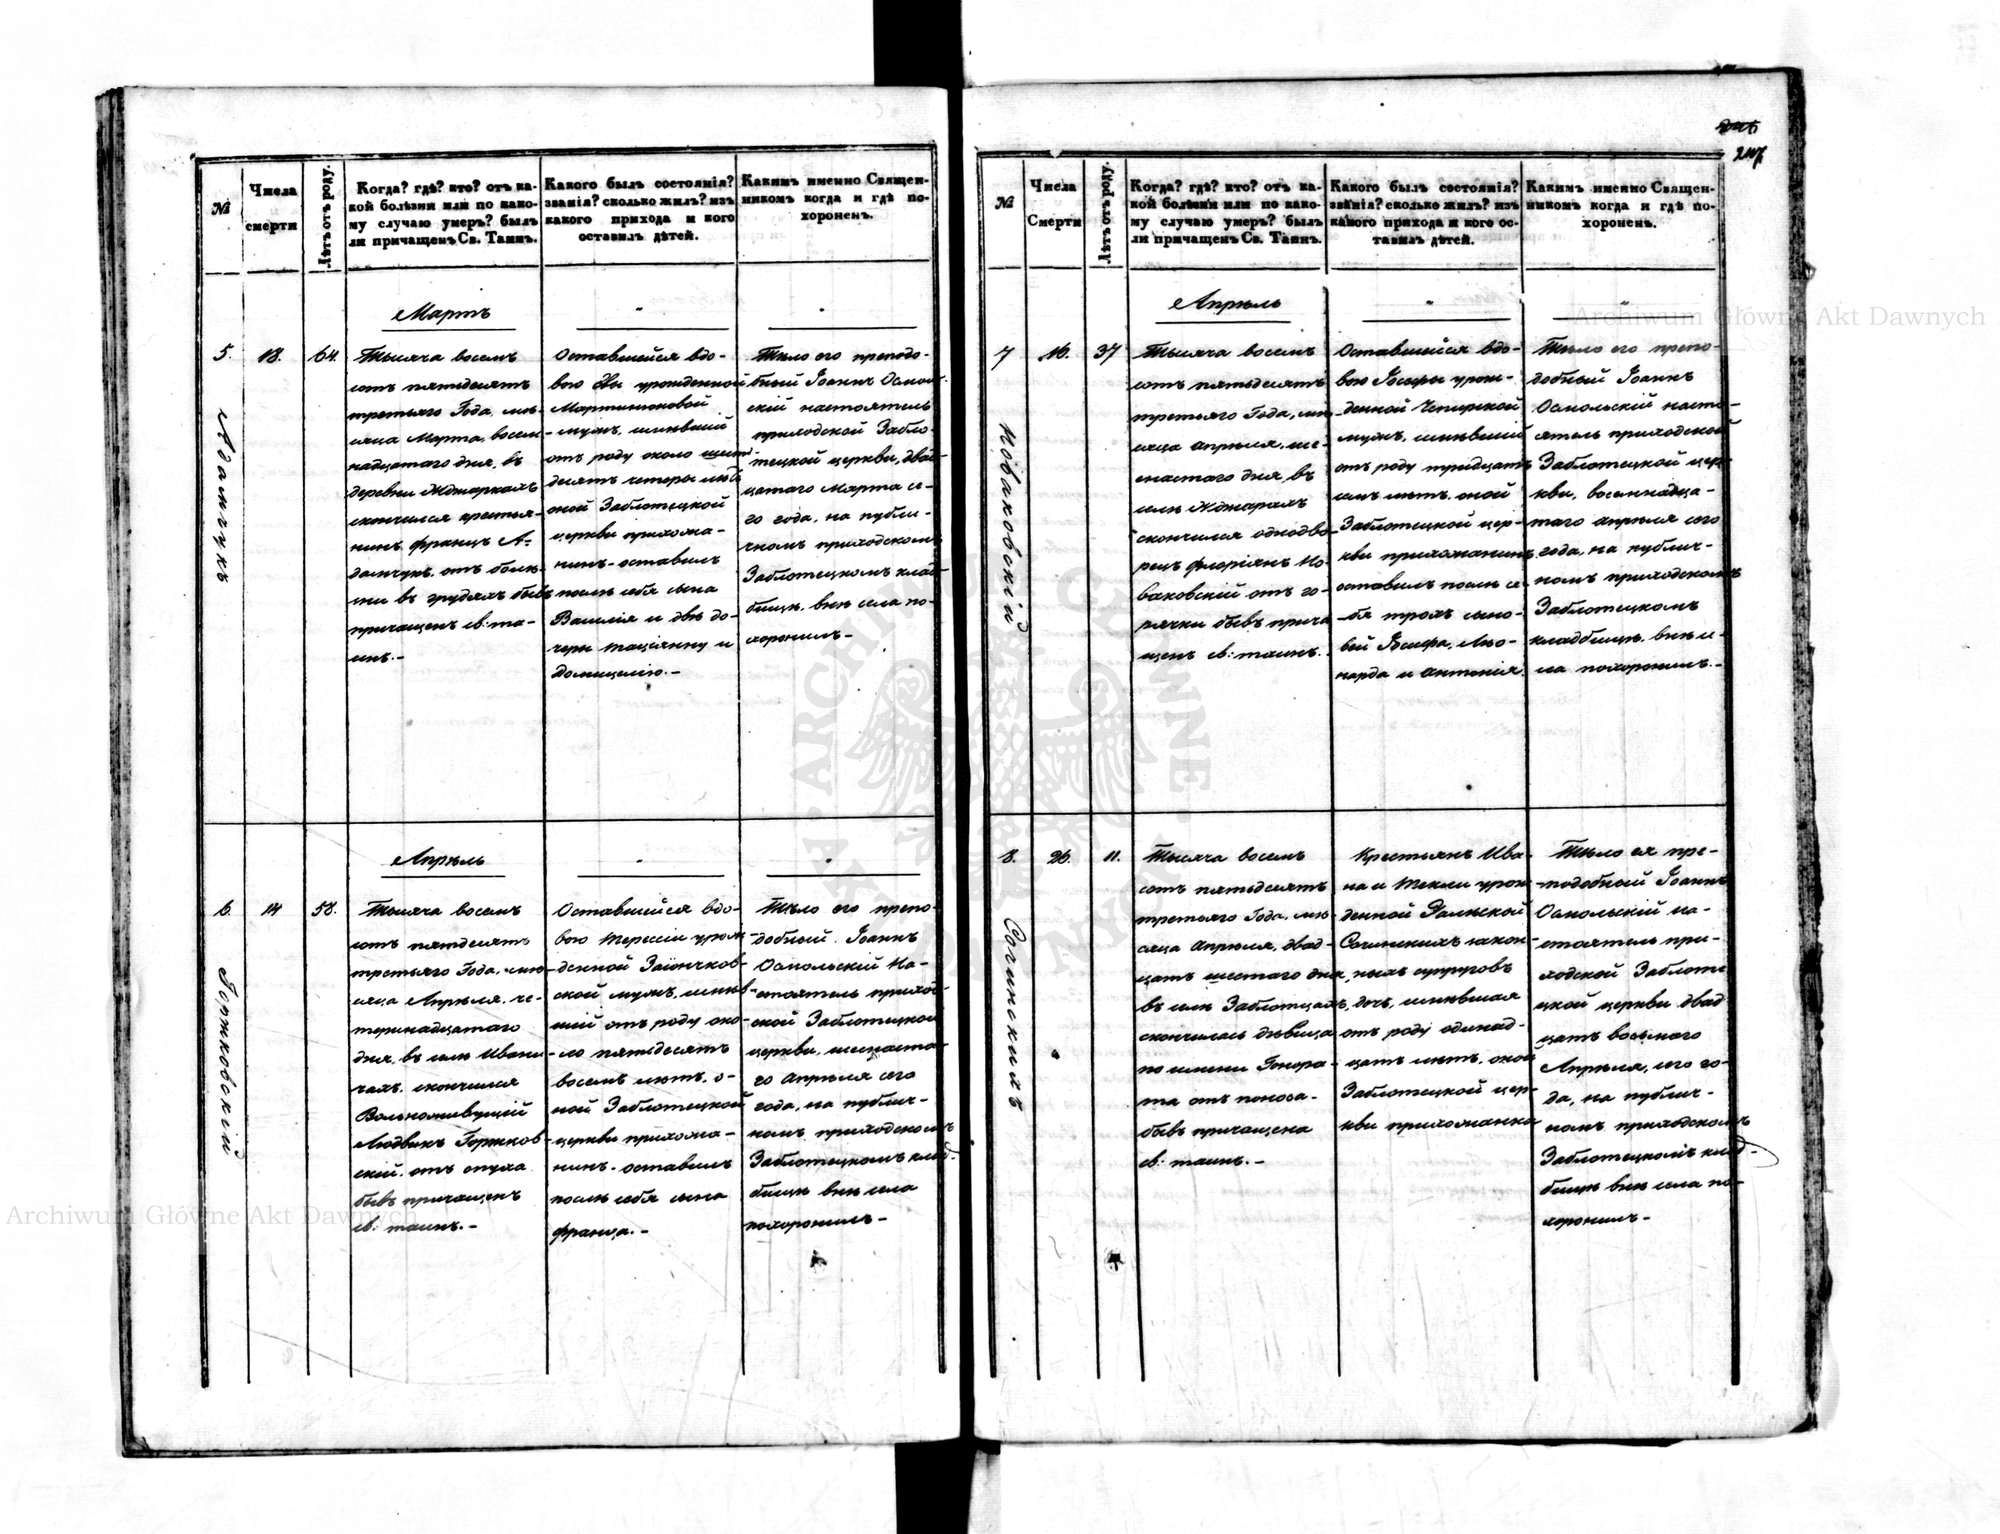 №
Числа
смерти
Лѣтъ отъ роду.
Когда? гдѣ? кто? отъ ка-
кой болѣзни или по како-
му случаю умеръ? былъ
ли причащенъ Св. Таинъ.
Какого былъ состоянія?
званія? сколько жилъ? изъ
какого прихода и кого
оставилъ дѣтей.
Какимъ именно Священ-
никомъ когда и гдѣ по-
хороненъ.
Мартъ
5.
18.
64.
Адамчукъ
Тысяча восемъ
сотъ пятьдесятъ
третьяго Года, мѣ-
сяца Марта, восем-
надцатаго дня, въ
деревни Жджаркахъ
скончился крестья-
нинъ Францъ А-
дамчукъ отъ болѣ-
зни въ грудяхъ бывъ
причащенъ св: та-
инъ.-
Оставшейся вдо-
вою Евы урожденной
Мартинюковой
мужъ, имѣвшій
отъ роду около шест-
десятъ четеры лѣтъ
оной Заблотецкой
церкви прихожа-
нинъ - оставилъ
послѣ себя сына
Василія и двѣ до-
черы Тацiянну и
Домицелію.-
Тѣло его преподо-
бный Іоаннъ Осмоль-
скій настоятель
приходской Забло-
тецкой церкви, двад-
цатаго Марта се-
го года, на публи-
чномъ приходскомъ
Заблотецкомъ клад-
бищѣ внѣ села по-
хоронилъ-
Апрѣль
6.
14
58.
Горжковскій
Тысяча восемъ
сотъ пятдесятъ
третьяго Года, мѣ-
сяца Апрѣля, че-
тернадцатаго
дня, въ селѣ Ивани-
чахъ скончился
Вольноживущій
Людвикъ Горжков-
скій отъ опуха
бывъ причащенъ
св: таинъ.-
Оставшейся вдо-
вою Терессіи урож-
денной Заіончков-
ской мужъ, имѣв-
шій отъ роду око-
ло пятдесятъ
восемъ лѣтъ, о-
ной Заблотецкой
церкви прихожа-
нинъ - оставилъ
послѣ себя сына
Франца.-
Тѣло его препо-
добный Іоаннъ
Осмольскій На-
стоятель приход-
ской Заблотецкой
церкви, шестнаста-
го Апрѣля сего
года, на публич-
номъ приходскомъ
Заблотецкомъ клад-
бищѣ внѣ села
похоронилъ-
207
№
Числа
Смерти
Лѣтъ отъ роду.
Когда? гдѣ? кто? отъ ка-
кой болѣзни или по како-
му случаю умеръ? былъ
ли причащенъ Св. Таинъ.
Какого былъ состоянія?
званія? сколько жилъ? изъ
какого прихода и кого ос-
тавилъ дѣтей.
Какимъ именно Священ-
никомъ когда и гдѣ по-
хороненъ.
Апрѣль
7
16.
37
Новаковскій
Тысяча восемъ
сотъ пятьдесятъ
третьяго Года, мѣ-
сяца Апрѣля, ше-
снастаго дня, въ
селѣ Жджарахъ
скончился однодво-
рецъ Флоріянъ Но-
ваковскій отъ го-
рячки бывъ прича-
щенъ св: таинъ.
Оставшейся вдо-
вою Іосефы урож-
денной Чепирской
мужъ, имѣвшій
отъ роду тридцатъ
семъ лѣтъ, оной
Заблотецкой цер-
кви прихожанинъ
оставилъ послѣ се-
бя трохъ сыно-
вей Іосифа, Лео-
нарда и Антонія.
Тѣло его препо-
добный Іоаннъ
Осмольскій насто-
ятель приходской
Заблотецкой цер-
кви, восемнадца-
таго Апрѣля сего
года, на публич-
номъ приходскомъ
Заблотецкомъ
кладбищѣ, внѣ се-
ла похоронилъ.-
8.
26.
11.
Сочинскихъ
Тысяча восемъ
сотъ пятьдесятъ
третьяго Года, мѣ-
сяца Апрѣля, двад-
цатъ шестаго дня,
въ селѣ Заблотцахъ
скончилась дѣвица
по имени Гонора-
та отъ поноса-
бывъ причащена
св: таинъ.-
Крестьянъ Ива-
на и Текли урож-
денной
Сочинскихъ закон-
ныхъ супруговъ
дочь, имѣвшая
отъ роду одинад-
цатъ лѣтъ, оной
Заблотецкой цер-
кви прихожанка
Тѣло ея пре-
подобный Іоаннъ
Осмольскій на-
стоятель при-
ходской Заблоте-
цкой церкви двад-
цатъ восьмаго
Апрѣля, сего го-
да, на публич-
номъ приходскомъ
Заблотецкомъ клад-
бищѣ внѣ села по-
хоронилъ-
Archiwum Główne Akt Dawnych
Archiwum Główne Akt Dawnych
ARCHIWUM GŁÓWNE AKT DAWNYCH